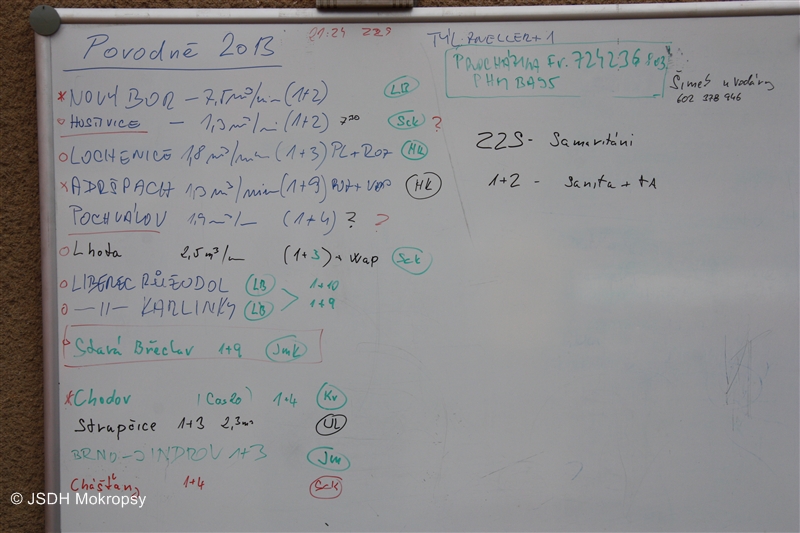 Povodně 2013
21:24 ZZS
* NOVÝ BOR - 7,5 m³/min (1+2) LB
HOSTIVICE - 1,3 m³/min (1+2) 7⁰⁰ Sck ?
LOCHENICE 1,8 m³/min (1+3) PL+ROZ HK
* ADRŠPACH 1,3 m³/min (1+9) HK
POCHVALOV 1,9 m³/m (1+4) ? ?
Lhota 2,5 m³/m (1+3) + WAP Sck
LIBEREC RŮŽODOL LB 1+10
-11- KARLINKY LB 1+9
Stará Břeclav 1+9 JmK
* Chodov (Caslo) 1+4 KV
Strupčice 1+3 2,3 m³ UL
BRNO - JINDROV 1+3 Jm
Chášťany 1+4 Sck
TÝL +1
PROCHÁZKA Fr. 724236803
PHM BA95
Šimeš u vodárny
602 378 946
ZZS - Samaritáni
1+2 - Sanita + tA
© JSDH Mokropsy